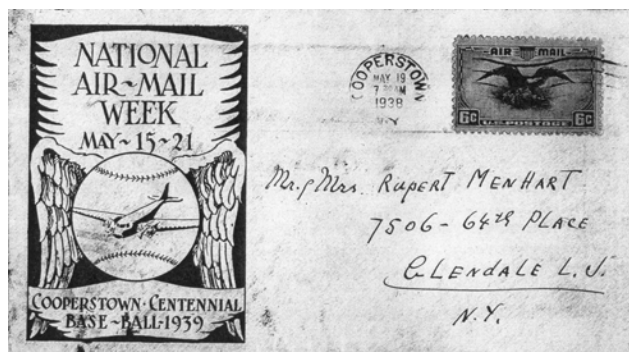 NATIONAL
AIR-MAIL
WEEK
MAY-15-21
COOPERSTOWN·CENTENNIAL
BASE-BALL-1939
COOPERSTOWN
MAY 19
1938
N.Y.
AIR MAIL
6¢ 6¢
U.S. POSTAGE
Mr. & Mrs. RUPERT MENHART
7506 - 64th PLACE
GLENDALE L.I.
N.Y.